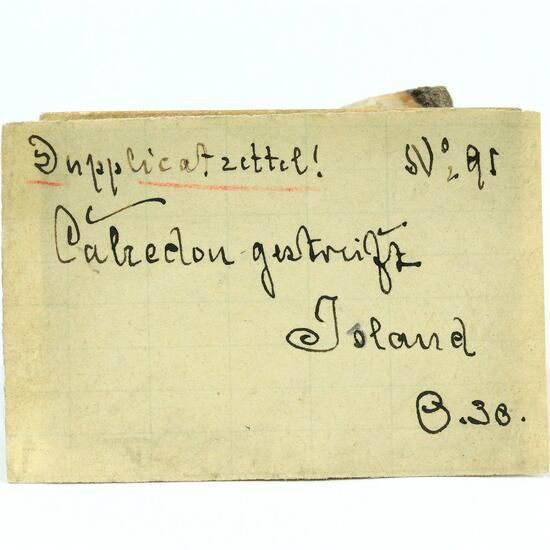 Dupplicatzettel! No. 91
Calzedon gestreift
Island